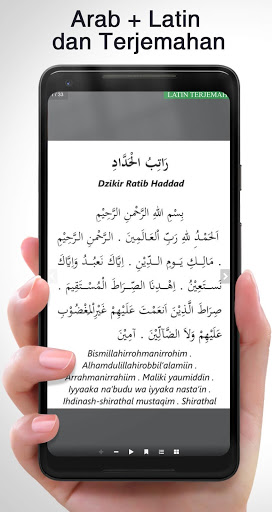 Arab + Latin
dan Terjemahan
LATIN TERJEMAH
رَاتِبُ الْحَدَّادِ
Dzikir Ratib Haddad
بِسْمِ اللهِ الرَّحْمنِ الرَّحِيْمِ
اَلحَمْدُ للهِ رَبِّ اْلعَالَمِيْنَ . الرَّحْمنِ الرَّحِيْمِ
. مَالِـكِ يَـوْمِ الـدِّيْنِ . اِيَّاكَ نَعْبُدُ وَاِيَّاكَ
نَسْتَعِيْنُ . اِهْدِنَا الصِّرَاطَ الْمُسْتَقِيْمَ .
صِرَاطَ الَّذِيْنَ اَنْعَمْتَ عَلَيْهِمْ غَيْرِالْمَغْضُوْبِ
عَلَيْهِمْ وَلاَ الضَّآلِّيْنَ . آمِيْنَ
Bismillahirrohmanirrohim .
Alhamdulillahirobbil'alamiin .
Arrahmanirrahiim . Maliki yaumiddin .
Iyyaaka na'budu wa iyyaka nasta'in .
Ihdinash-shirathal mustaqim . Shirathal